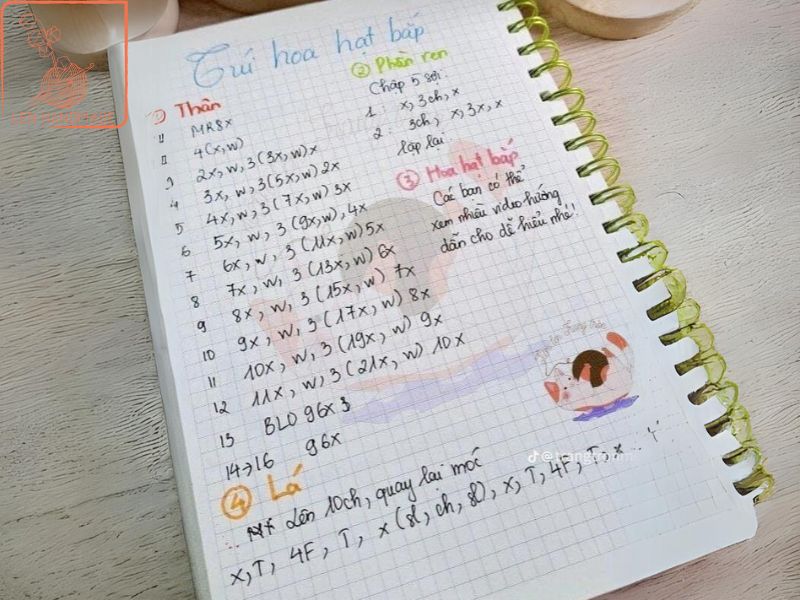 Túi hoa hạt bắp
① Thân
1 MR8X
2 4(x, w)
3 2x, w, 3(3x, w)x
4 3x, w, 3(5x, w)2x
5 4x, w, 3(7x, w)3x
6 5x, w, 3(9x, w), 4x
7 6x, w, 3(11x, w)5x
8 7x, w, 3(13x, w)6x
9 8x, w, 3(15x, w) 7x
10 9x, w, 3(17x, w) 8x
11 10x, w, 3(19x, w) 9x
12 11x, w, 3(21x, w) 10x
13 BLO 96x 3
14→16 96x
② Phần ren
Chập 5 sợi.
1: x, 3ch, x
2: 3ch, x, 3x, x
lặp lại.
③ Hoa hạt bắp
Các bạn có thể
xem nhiều video hướng
dẫn cho dễ hiểu nhé!
④ Lá
Lên 10ch, quay lại móc
x, T, 4F, T, x (sl, ch, sl), x, T, 4F, T, x